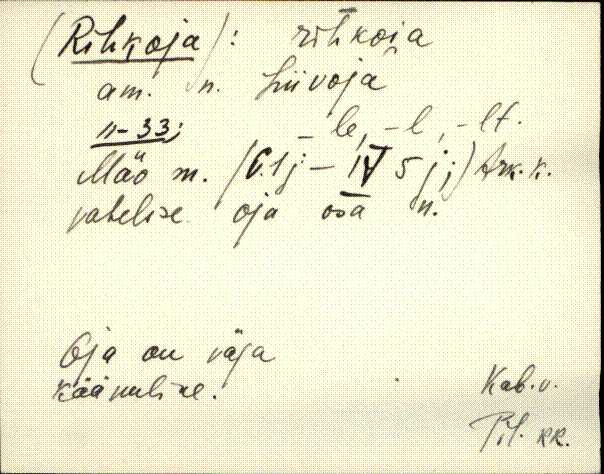 (Rihkoja): rihkoja
am. n. Liivoja
n-33; -le, -l, -lt.
Mäo m. (C.1j - IV 5 j;) Ark. k.
vahelise oja osa n.
Oja on väga
kääruline.
Kab. v.
Pil. kk.